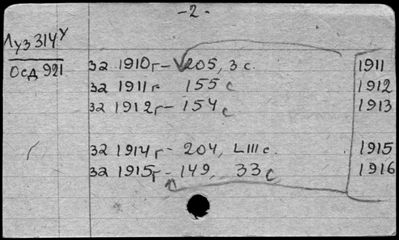 -2-
Луз 314У
Осд 921
за 1910г- 205, 3 с. 1911
за 1911г 155 с 1912
за 1912г- 154с 1913
за 1914г- 204, LIII с. 1915
за 1915г- 149, 33 с 1916